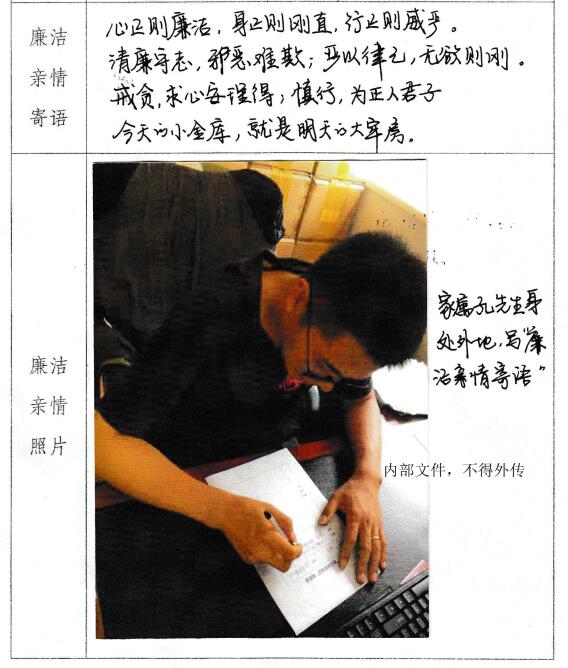 廉洁
亲情
寄语
心正则廉洁，身正则刚直，行正则威严。
清廉守志，邪恶难欺；严以律己，无欲则刚。
戒贪，求心安理得；慎行，为正人君子
今天的小金库，就是明天的大牢房。
廉洁
亲情
照片
家属孔先生身
处外地，写“廉
洁亲情寄语”
内部文件，不得外传